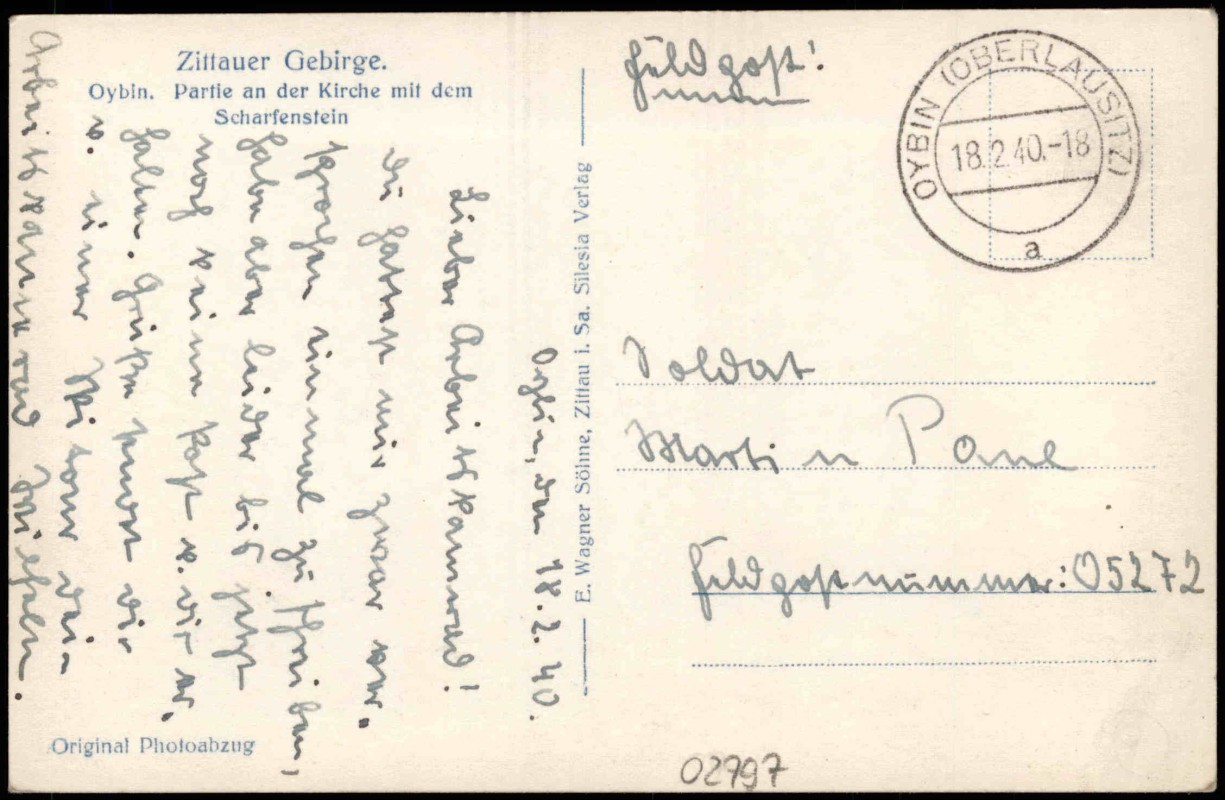 Zittauer Gebirge.
Oybin. Partie an der Kirche mit dem
Scharfenstein
Oybin, den 18.2.40.
Lieber Arbeitskamerad!
Du hattest mir zwar ver-
sprochen einmal zu schreiben,
habe aber leider bis jetzt
noch keine Post v. dir er-
halten. Grüße sendet dir
dein
Arbeitskamerad
Original Photoabzug
E. Wagner Söhne, Zittau i. Sa. Silesia Verlag
Feldpost!
OYBIN (OBERLAUSITZ)
18.2.40.-18
a
Soldat
Martin
Feldpostnummer: 05272
02797